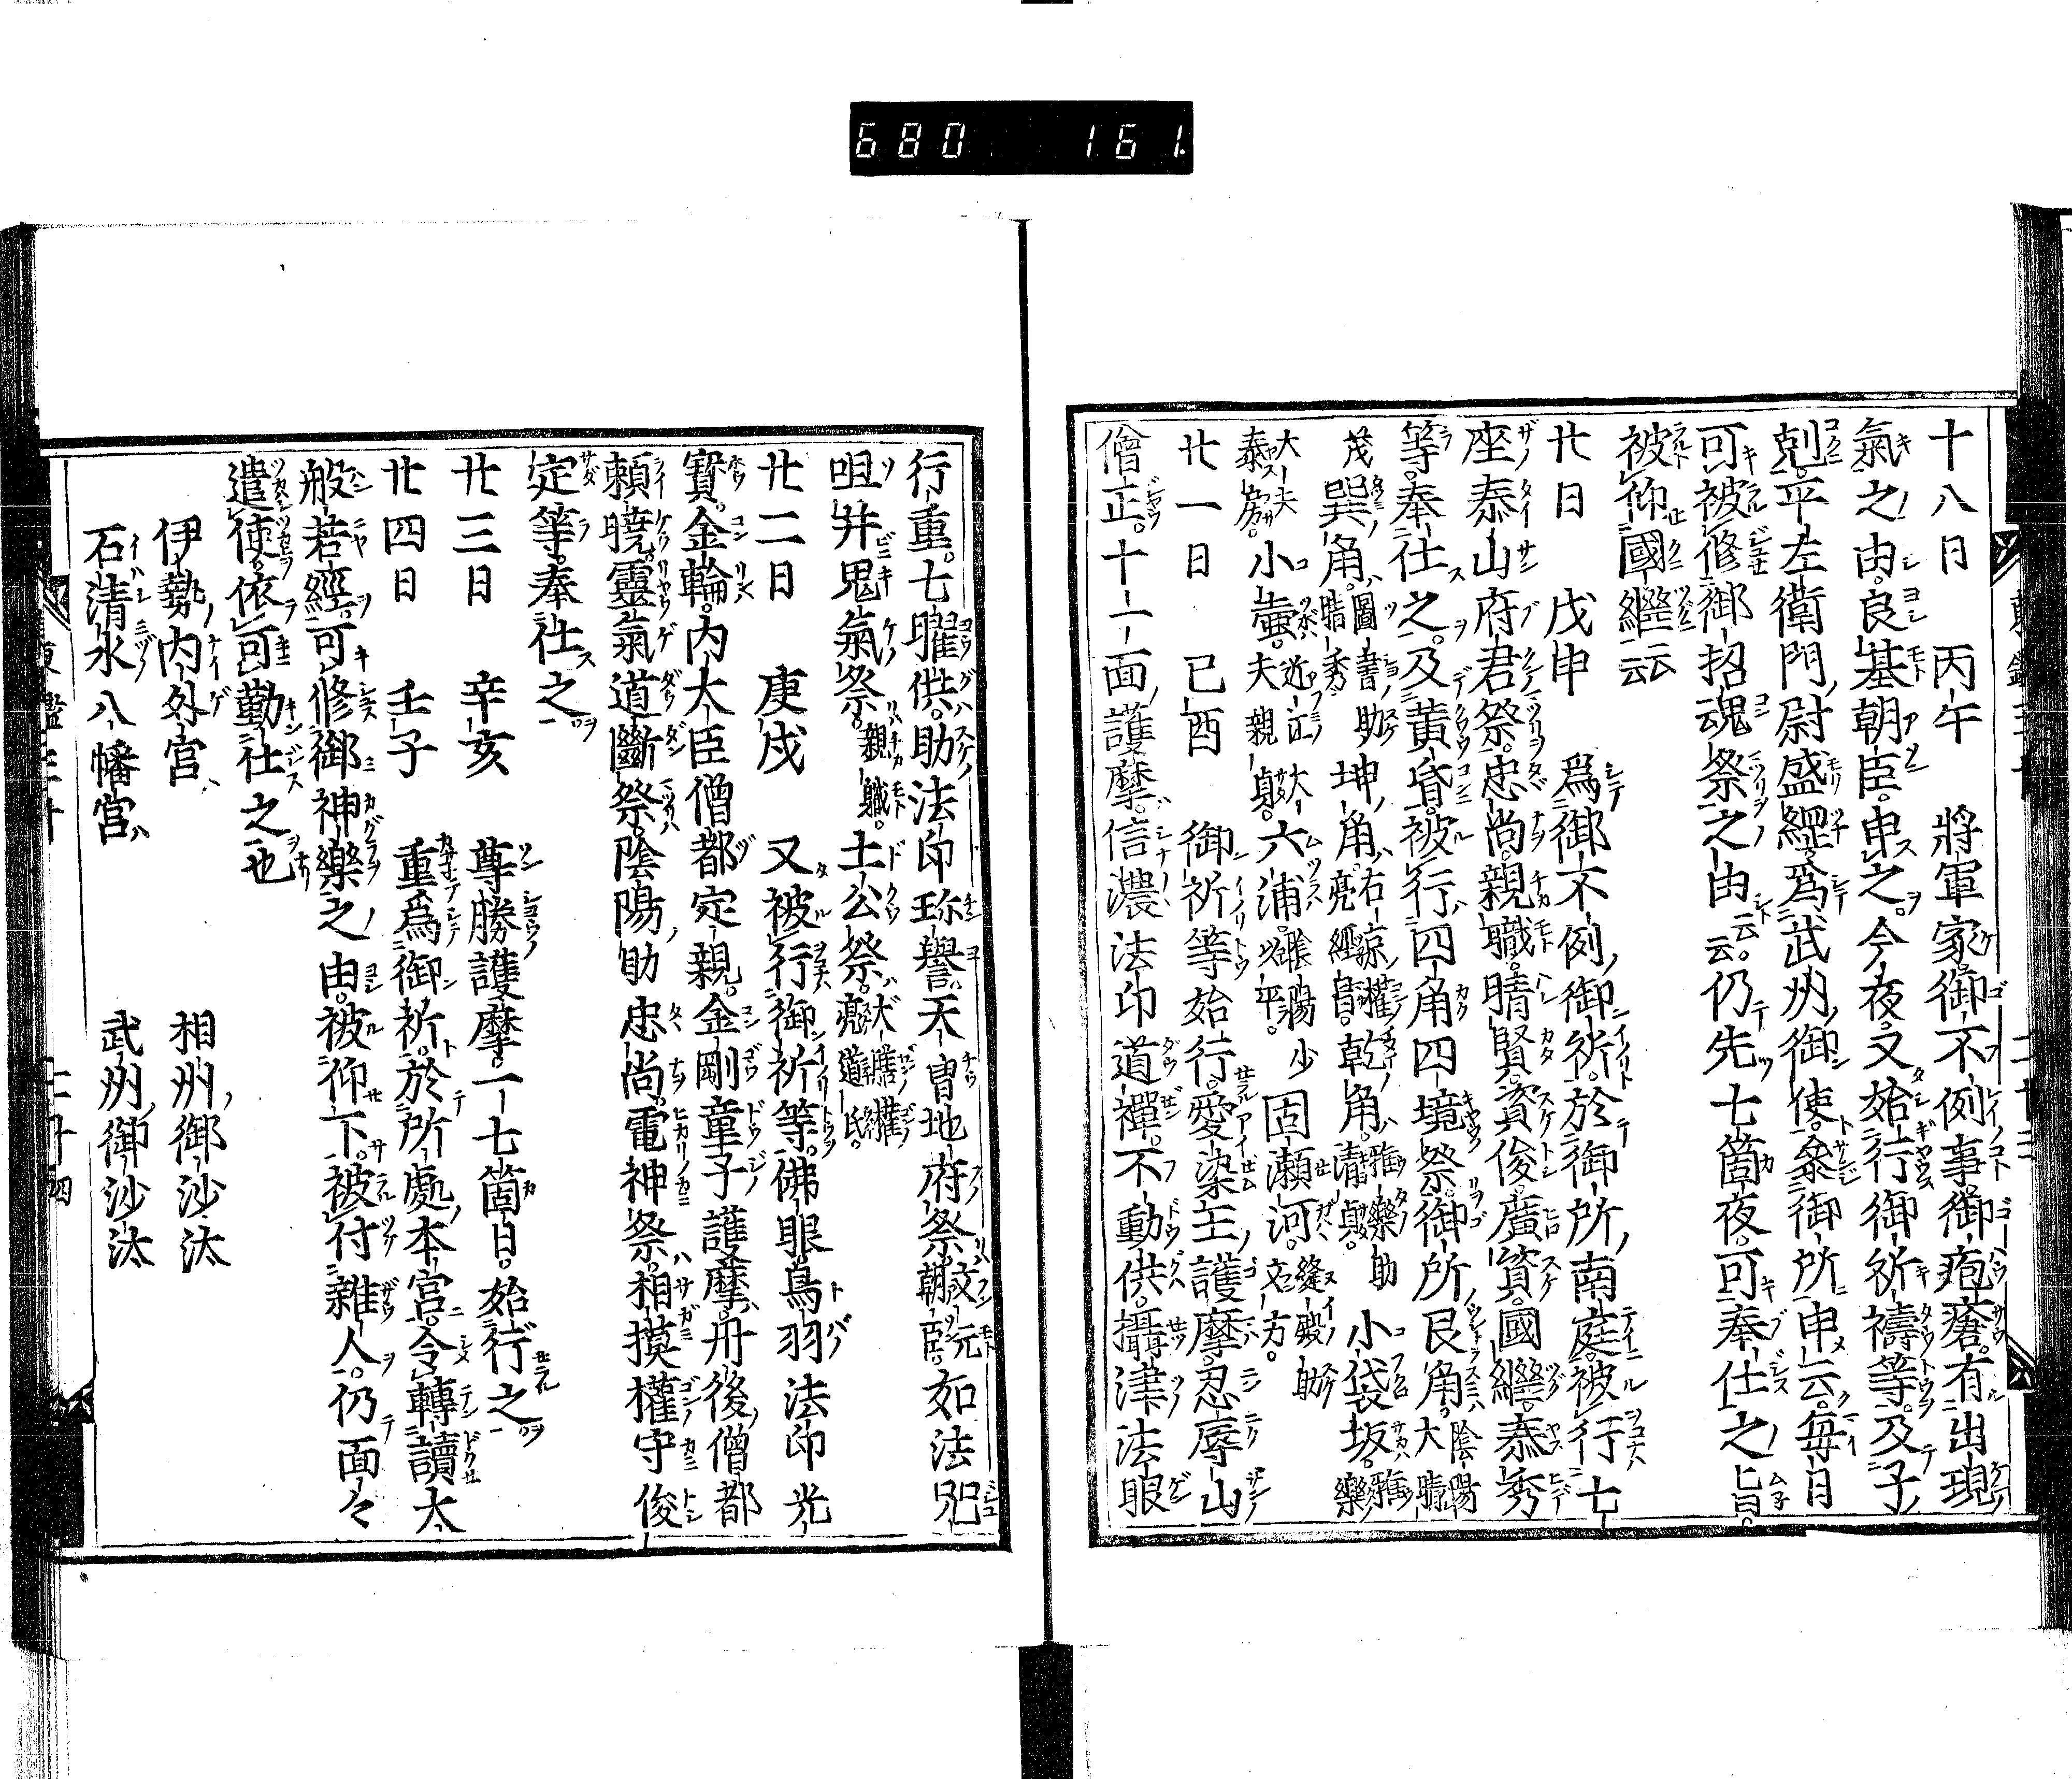 680 161
十八日 丙午 將軍家御不例事御疱瘡有出現
氣之由良基朝臣申之今夜又始行御祈禱等及子
剋平左衛門尉盛經爲武州御使參御所申云毎日
可被修御招魂祭之由云云仍先七箇夜可奉仕之旨
被仰國繼云云
廿日 戊申 爲御不例御祈於御所南庭被行七
座泰山府君祭忠尚親職晴賢資俊廣資國繼泰秀
等奉仕之及黄昏被行四角四境祭御所艮角陰陽大晴
茂巽角圖書助晴秀坤角右京權亮經昌乾角雅樂助清貞小袋坂雅樂
大夫泰房小壷近江大夫親貞六浦陰陽少允以平固瀬河縫殿助文方
廿一日 已酉 御祈等始行愛染王護摩忍辱山
僧正十一面護摩信濃法印道禪不動供攝津法眼
行重七曜供助法印珎譽天曺地府祭文元朝臣如法呪
咀并鬼氣祭親職土公祭大膳權亮道氏
廿二日 庚戌 又被行御祈等佛眼鳥羽法印光
寳金輪内大臣僧都定親金剛童子護摩丹後僧都
頼曉靈氣道斷祭陰陽助忠尚電神祭相摸權守俊
定等奉仕之
廿三日 辛亥 尊勝護摩一七箇日始行之
廿四日 壬子 重爲御祈於所處本宮令轉讀大
般若經可修御神樂之由被仰下被付雜人仍面々
遣使依可勤仕之也
伊勢内外宮 相州御沙汰
石清水八幡宮 武州御沙汰